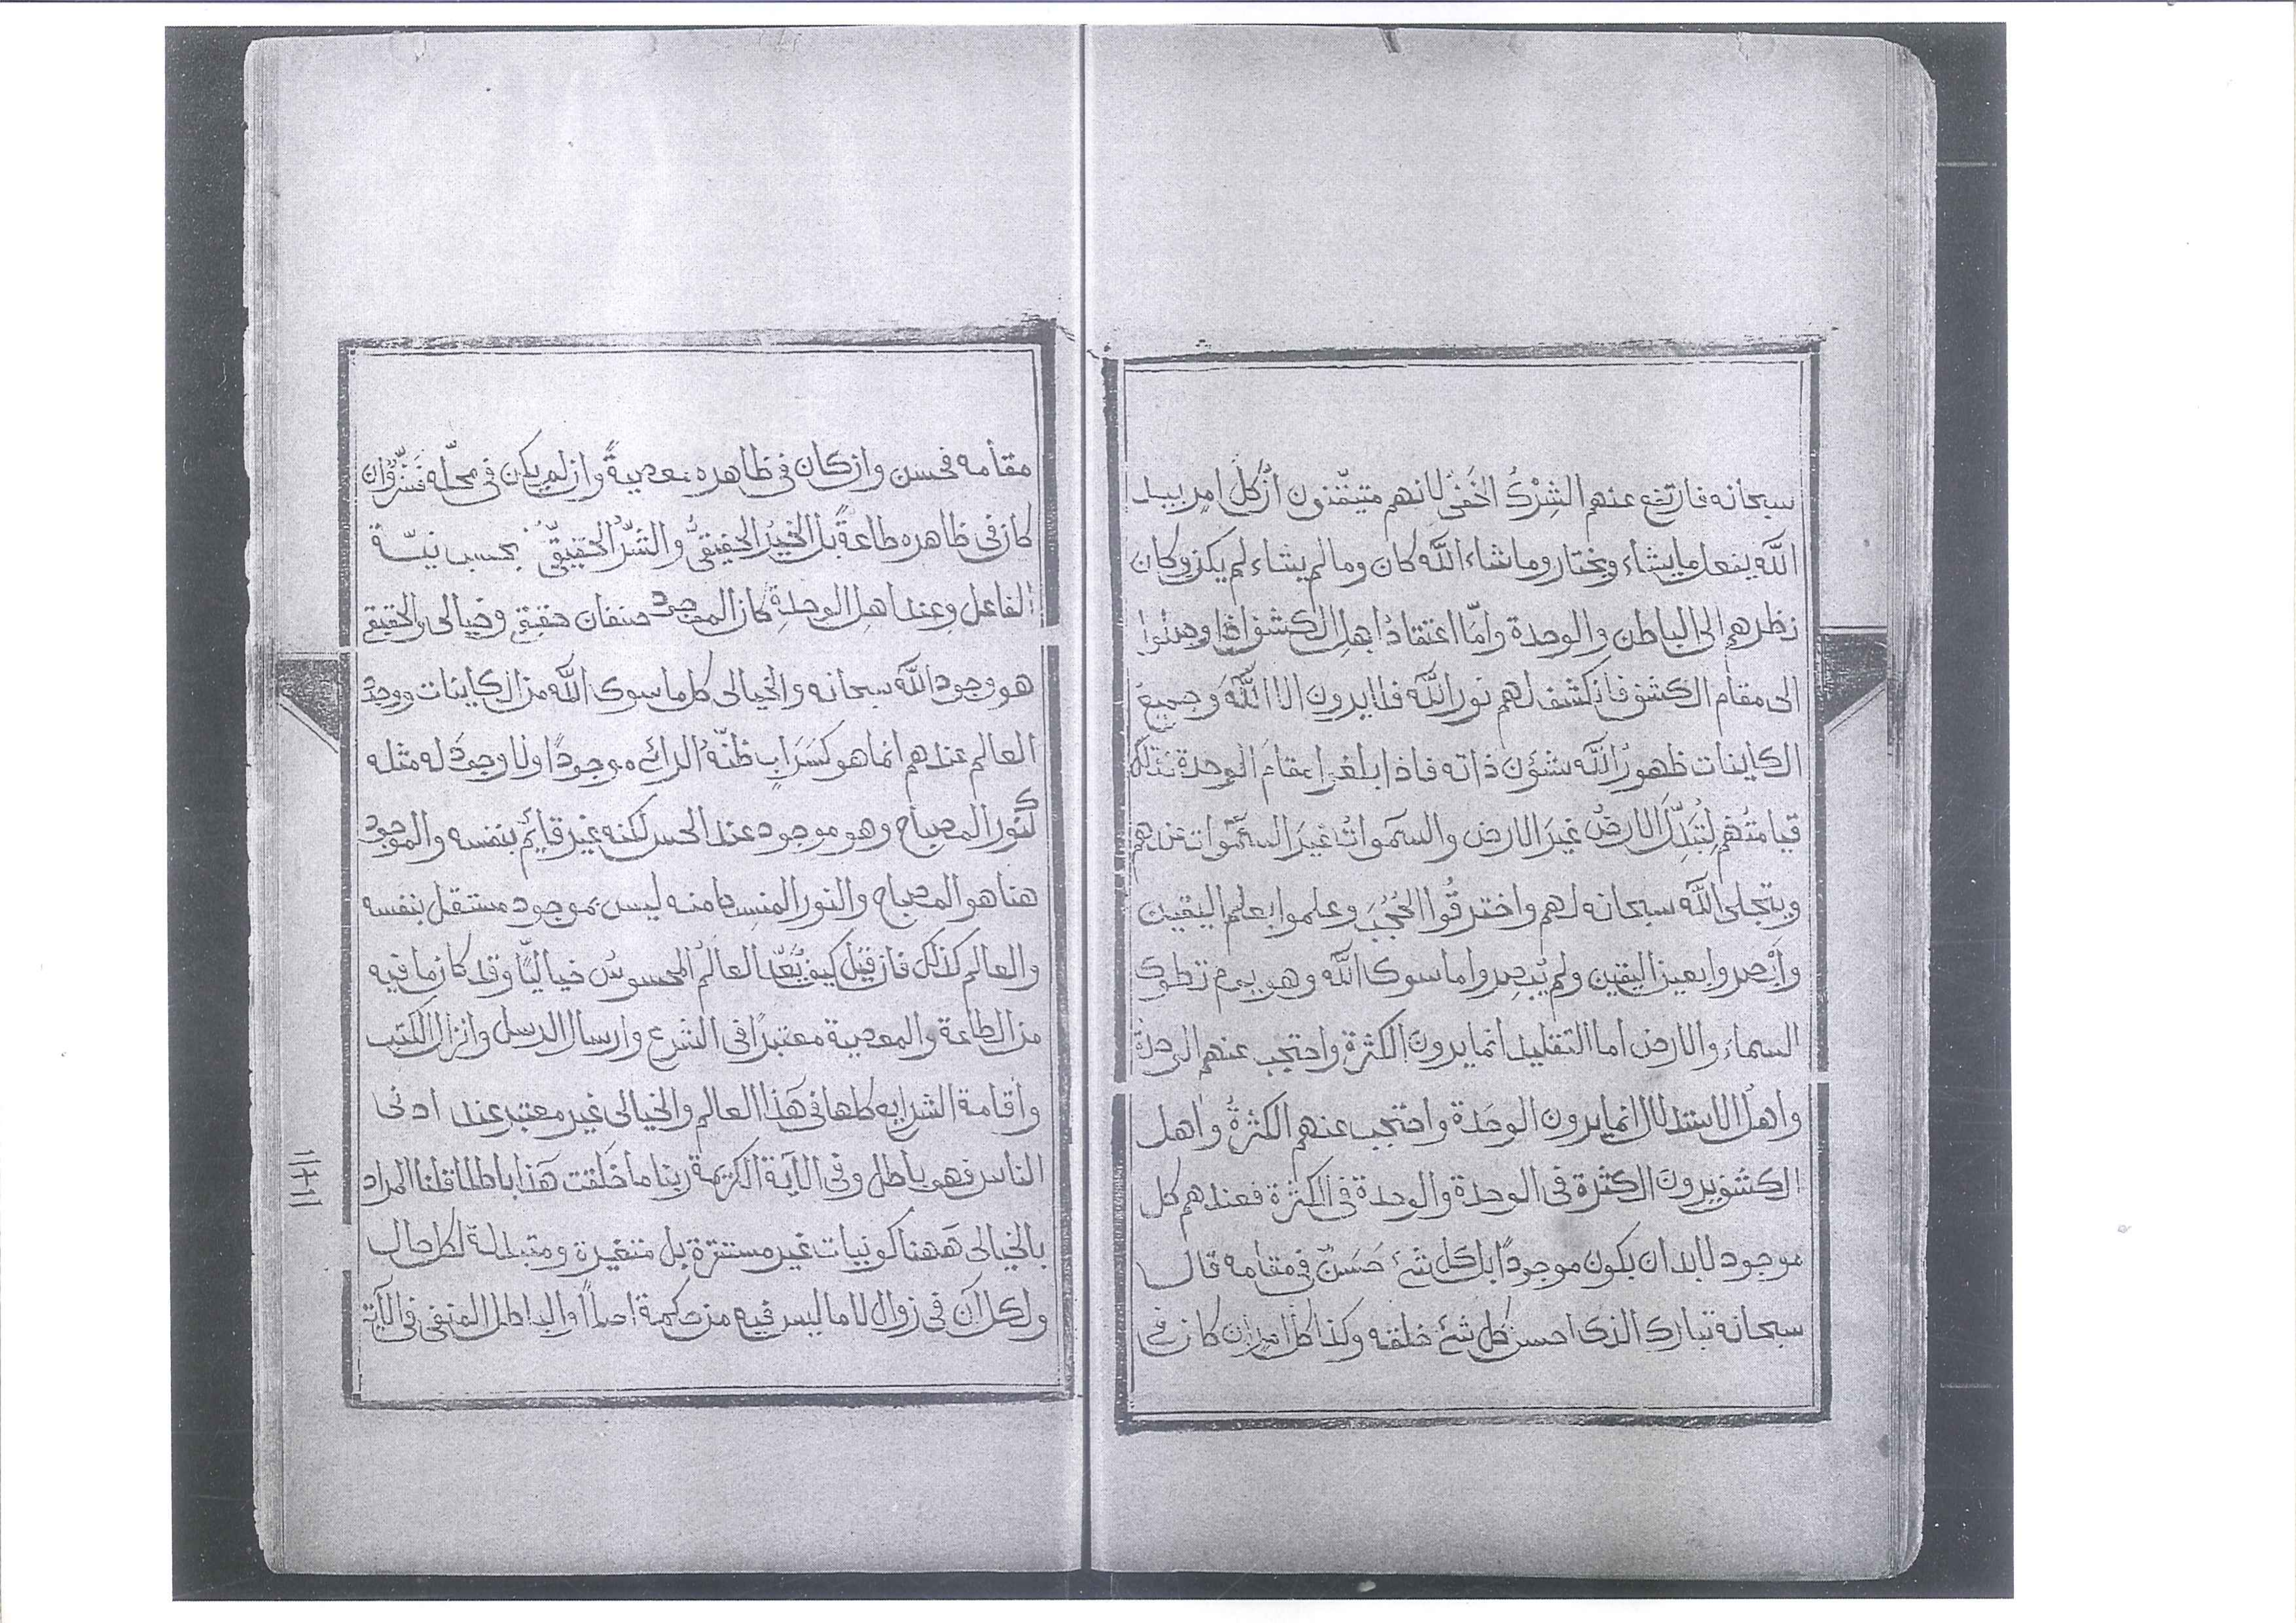 سبحانه فارتفع عنهم الشِرْكُ الخَفىُّ لانهم متيقّنون انّ كلّ امر بيد
الله يفعل ما يشاء ويختار وما شاء الله كان وما لم يشاء لم يكن وكان
نظرهم الى الباطن والوحدة وامّا اعتقادُ اهل الكشف اذا وصلوا
الى مقام الكشف فانكشف لهم نور الله فلا يرون الا اللهَ وجميعَ
الكاينات ظهورُ الله بشؤن ذاته فاذا بلغوا مقامَ الوحدة فتلك
قيامتُهم لتُبَدِّلَ الارضُ غيرَ الارض والسموات غيرَ السموات عندهم
ويتجلى الله سبحانه لهم واخترقُوا الحُجُبَ وعلموا بعلم اليقين
وابْصروا بعين اليقين ولم يُبصِروا ما سوى الله وهو يوم نطوى
السماءَ والارض اما التقليد انما يرونَ الكثرة واحتجب عنهم الوحدة
واهلُ الاستدلال انما يرون الوحَدة واحتجب عنهم الكثرةُ واهل
الكشف يرون الكثرة فى الوحدة والوحدة فى الكثرة فعندهم كل
موجود لابد ان يكون موجودًا بل كل شئ حَسَنٌ فى مقامه قال
سبحانه تبارك الذى احسن كل شئ خلقه وكذا كل امر ان كان فى
مقامه فحسن وان كان فى ظاهره معصيةً وان لم يكن فى محلّه فَشَرٌّ وان
كان فى ظاهره طاعةً بل الخيرُ الحقيقىُّ والشرُّ الحقيقىُّ بحسب نيّة
الفاعل وعند اهل الوحدةِ كان الموجود صنفان حقيقى وخيالى والحقيقى
هو وجود الله سبحانه والخيالى كل ما سوى الله من الكاينات ووجود
العالم عندهم انما هو كَسَرَابٍ ظنّه الرائى موجودًا ولا وجودَ له مثله
كنور المصباح وهو موجود عند الحس لكنه غير قايم بنفسه والموجود
هنا هو المصباح والنور المنبسط منه ليس بموجود مستقل بنفسه
والعالم كذلك فان قيل كيف يُعَدّ العالَمُ المحسوسُ خياليًّا وقد كان ما فيه
من الطاعة والمعصية معتبرًا فى الشرع وارسال الرسل وانزال الكتب
واقامة الشرايع كلها فى هَذا العالم والخيالى غير معتبر عند ادنى
الناس فهو باطل وفى الآية الكريمة ربنا ما خَلَقت هَذا باطلا قلنا المراد
بالخيالى هَهنا كونيات غير مستقرة بل متغيرة ومتبدلة لكل حال
ولكل آن فى زوال لا ما ليس فيه من حكمة اصلاً والباطل المنفى فى الآية